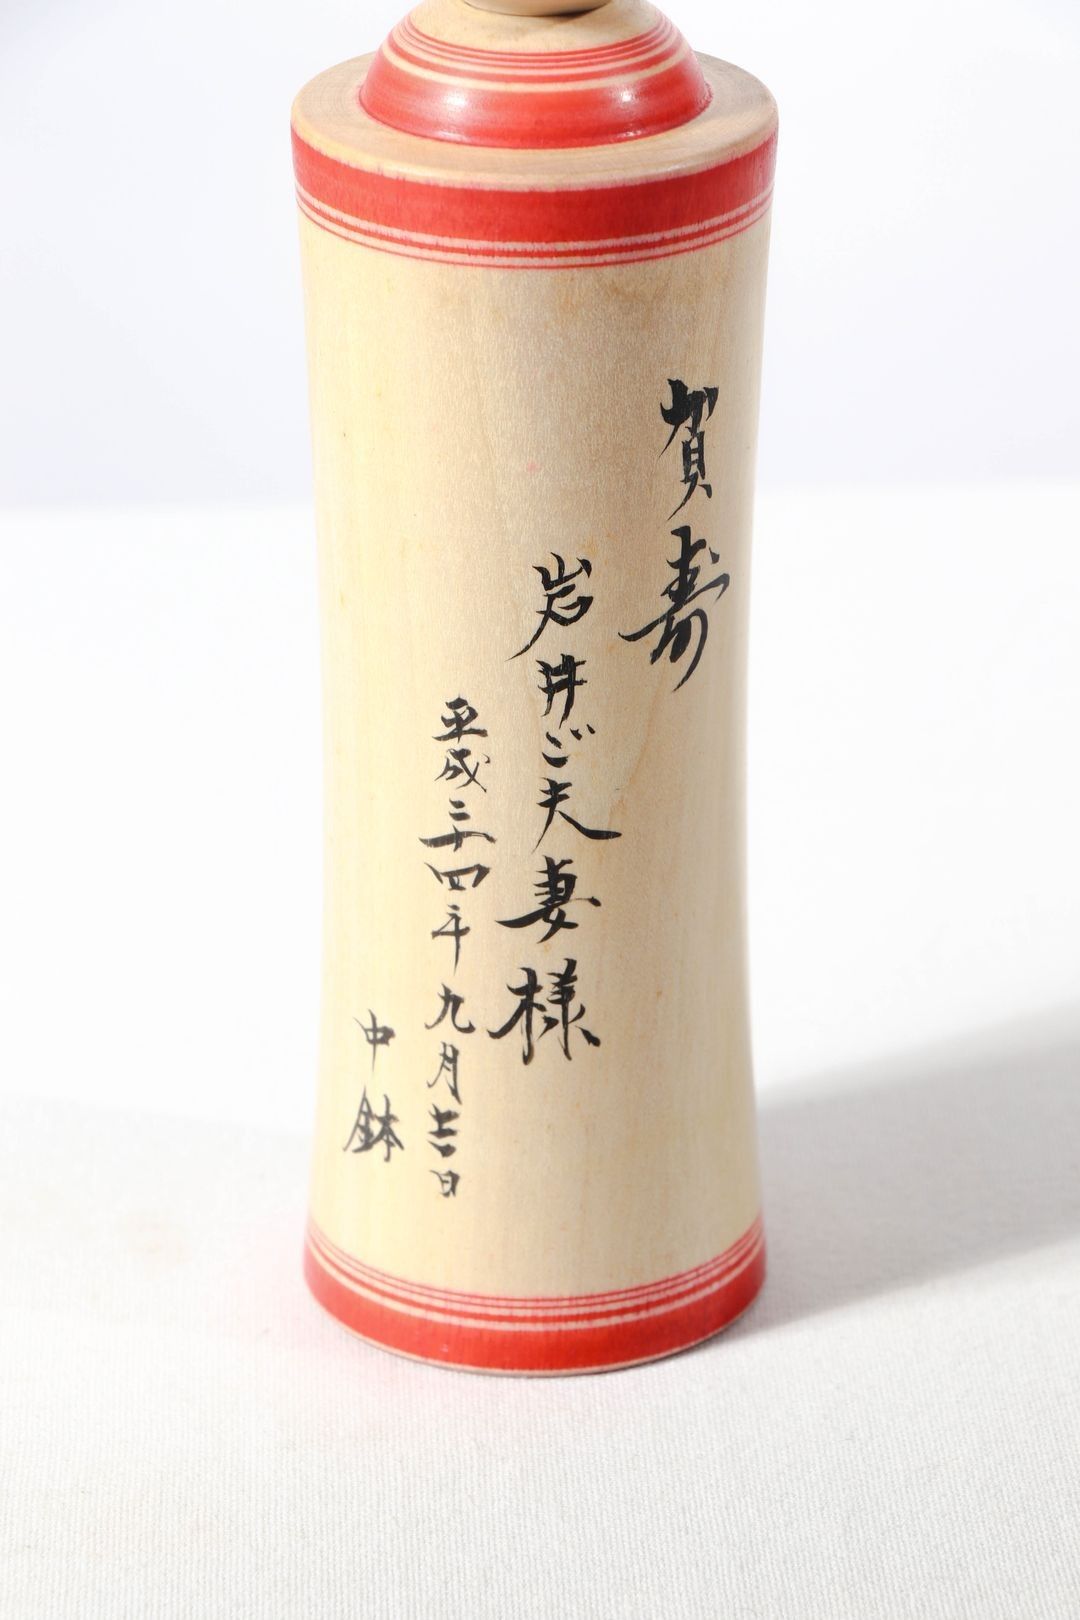 賀寿
岩井ご夫妻様
平成二十四年九月吉日
中鉢